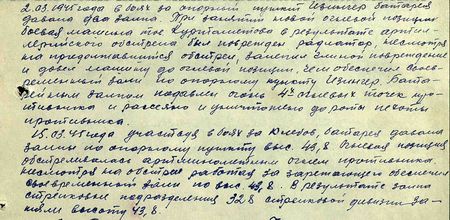 2.03.1945 в боях за опорный пункт Изингер батарея
давала два залпа. При занятии новой огневой позиции
боевая машина тов. в результате артил-
лерийского обстрела был поврежден радиатор, несмотря
на продолжавшийся обстрел, залепил глиной повреждение
и довел машину до огневой позиции, чем обеспечил свое-
временный залп по опорному пункту Изингер. Бата-
рейным залпом подавлен огонь 4х огневых точек про-
тивника и рассеяно и уничтожено до роты пехоты
противника.
15.03.45 года участвуя в боях за батарея давала
залпы по опорному пункту выс. 43,8. Огневая позиция
обстреливалась артминометным огнем противника.
несмотря на обстрел работая за заряжающего обеспечил
своевременный залп по выс 43,8. В результате залпа
стрелковые подразделения 328 стрелковой дивизии за-
няли высоту 43,8.